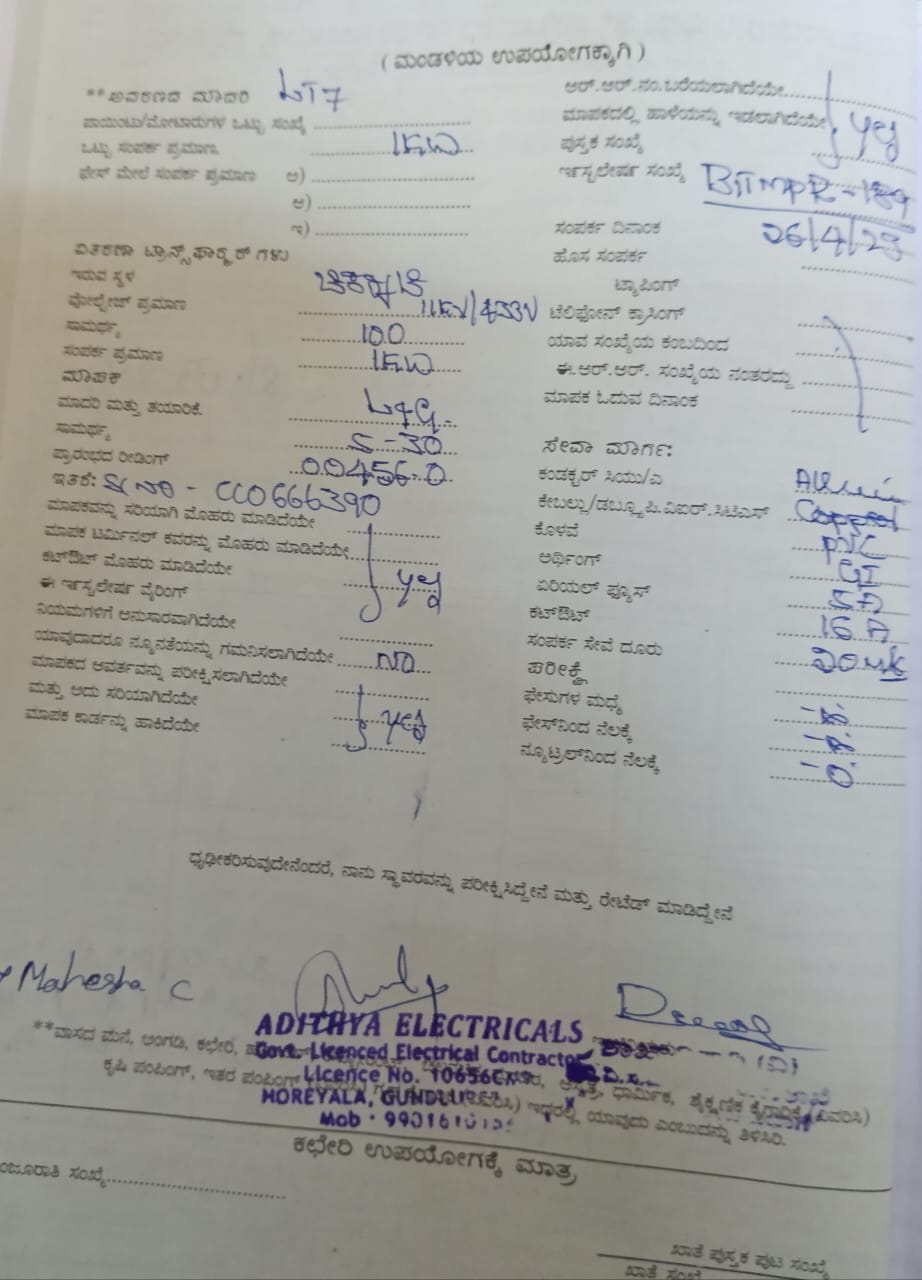 ( ಮಂಡಳಿಯ ಉಪಯೋಗಕ್ಕಾಗಿ )
**ಅವಕರಣದ ಮಾದರಿ LT7
ಪಾಯಿಂಟು/ಮೋಟಾರುಗಳ ಒಟ್ಟು ಸಂಖ್ಯೆ
ಒಟ್ಟು ಸಂಪರ್ಕ ಪ್ರಮಾಣ. 1KW
ಫೇಸ್ ಮೇಲೆ ಸಂಪರ್ಕ ಪ್ರಮಾಣ ಅ)
ಆ)
ಇ)
ವಿತರಣಾ ಟ್ರಾನ್ಸ್‌ಫಾರ್ಮರ್ ಗಳು
ಇರುವ ಸ್ಥಳ
ವೋಲ್ಟೇಜ್ ಪ್ರಮಾಣ 11KV/433V
ಸಾಮರ್ಥ್ಯ 100
ಸಂಪರ್ಕ ಪ್ರಮಾಣ 1KW
ಮಾಪಕ
ಮಾದರಿ ಮತ್ತು ತಯಾರಿಕೆ. L&G
ಸಾಮರ್ಥ್ಯ 5-30
ಪ್ರಾರಂಭದ ರೀಡಿಂಗ್ 00456.0
ಇತರೆ: Sl No - CC0666390
ಮಾಪಕವನ್ನು ಸರಿಯಾಗಿ ಮೊಹರು ಮಾಡಿದೆಯೇ
ಮಾಪಕ ಟರ್ಮಿನಲ್ ಕವರನ್ನು ಮೊಹರು ಮಾಡಿದೆಯೇ
ಕಟ್‌ಔಟ್ ಮೊಹರು ಮಾಡಿದೆಯೇ yes
ಈ ಇನ್ಸ್ಟಲೇಷನ್ ವೈರಿಂಗ್
ನಿಯಮಗಳಿಗೆ ಅನುಸಾರವಾಗಿದೆಯೇ
ಯಾವುದಾದರೂ ನ್ಯೂನತೆಯನ್ನು ಗಮನಿಸಲಾಗಿದೆಯೇ NO
ಮಾಪಕದ ಆವರ್ತವನ್ನು ಪರೀಕ್ಷಿಸಲಾಗಿದೆಯೇ
ಮತ್ತು ಅದು ಸರಿಯಾಗಿದೆಯೇ yes
ಮಾಪಕ ಕಾರ್ಡನ್ನು ಹಾಕಿದೆಯೇ
ಆರ್.ಆರ್.ನಂ.ಬರೆಯಲಾಗಿದೆಯೇ
ಮಾಪಕದಲ್ಲಿ ಹಾಳೆಯನ್ನು ಇಡಲಾಗಿದೆಯೇ yes
ಪುಸ್ತಕ ಸಂಖ್ಯೆ
ಇನ್ಸ್ಟಲೇಷನ್ ಸಂಖ್ಯೆ BTMPR-189
ಸಂಪರ್ಕ ದಿನಾಂಕ 26/4/23
ಹೊಸ ಸಂಪರ್ಕ
ಟ್ಯಾಪಿಂಗ್
ಟೆಲಿಫೋನ್ ಕ್ರಾಸಿಂಗ್
ಯಾವ ಸಂಖ್ಯೆಯ ಕಂಬದಿಂದ
ಈ.ಆರ್.ಆರ್. ಸಂಖ್ಯೆಯ ನಂತರದ್ದು
ಮಾಪಕ ಓದುವ ದಿನಾಂಕ
ಸೇವಾ ಮಾರ್ಗ:
ಕಂಡಕ್ಟರ್ ಸಿಯು/ಎ
ಕೇಬಲ್ಲು/ಡಬ್ಲ್ಯೂ.ಪಿ.ವಿಐರ್.ಸಿಟಿಎಸ್ Copper
ಕೊಳವೆ PVC
ಅರ್ಥಿಂಗ್ GI
ಏರಿಯಲ್ ಫ್ಯೂಸ್ 5A
ಕಟ್‌ಔಟ್ 16 A
ಸಂಪರ್ಕ ಸೇವೆ ದೂರು
ಪರೀಕ್ಷೆ
ಫೇಸುಗಳ ಮಧ್ಯೆ
ಫೇಸ್‌ನಿಂದ ನೆಲಕ್ಕೆ
ನ್ಯೂಟ್ರಲ್‌ನಿಂದ ನೆಲಕ್ಕೆ
ಧೃಢೀಕರಿಸುವುದೇನೆಂದರೆ, ನಾನು ಸ್ಥಾವರವನ್ನು ಪರೀಕ್ಷಿಸಿದ್ದೇನೆ ಮತ್ತು ರೇಟೆಡ್ ಮಾಡಿದ್ದೇನೆ
Mahesha C
ADITHYA ELECTRICALS
Govt. Licenced Electrical Contractor
Licence No.
HOREYALA,
Mob
**ವಾಸದ ಮನೆ, ಅಂಗಡಿ, ಕಛೇರಿ,
ಧಾರ್ಮಿಕ, ಶೈಕ್ಷಣಿಕ
ಕೃಷಿ ಪಂಪಿಂಗ್, ಇತರ ಪಂಪಿಂಗ್
ಇದ್ದರಲ್ಲಿ ಯಾವುದು ಎಂಬುದನ್ನು ತಿಳಿಸಿರಿ.
ಕಛೇರಿ ಉಪಯೋಗಕ್ಕೆ ಮಾತ್ರ
ಸಂಖ್ಯೆ
ಖಾತೆ ಪುಸ್ತಕ ಪುಟ ಸಂಖ್ಯೆ
ಖಾತೆ ಸಂಖ್ಯೆ